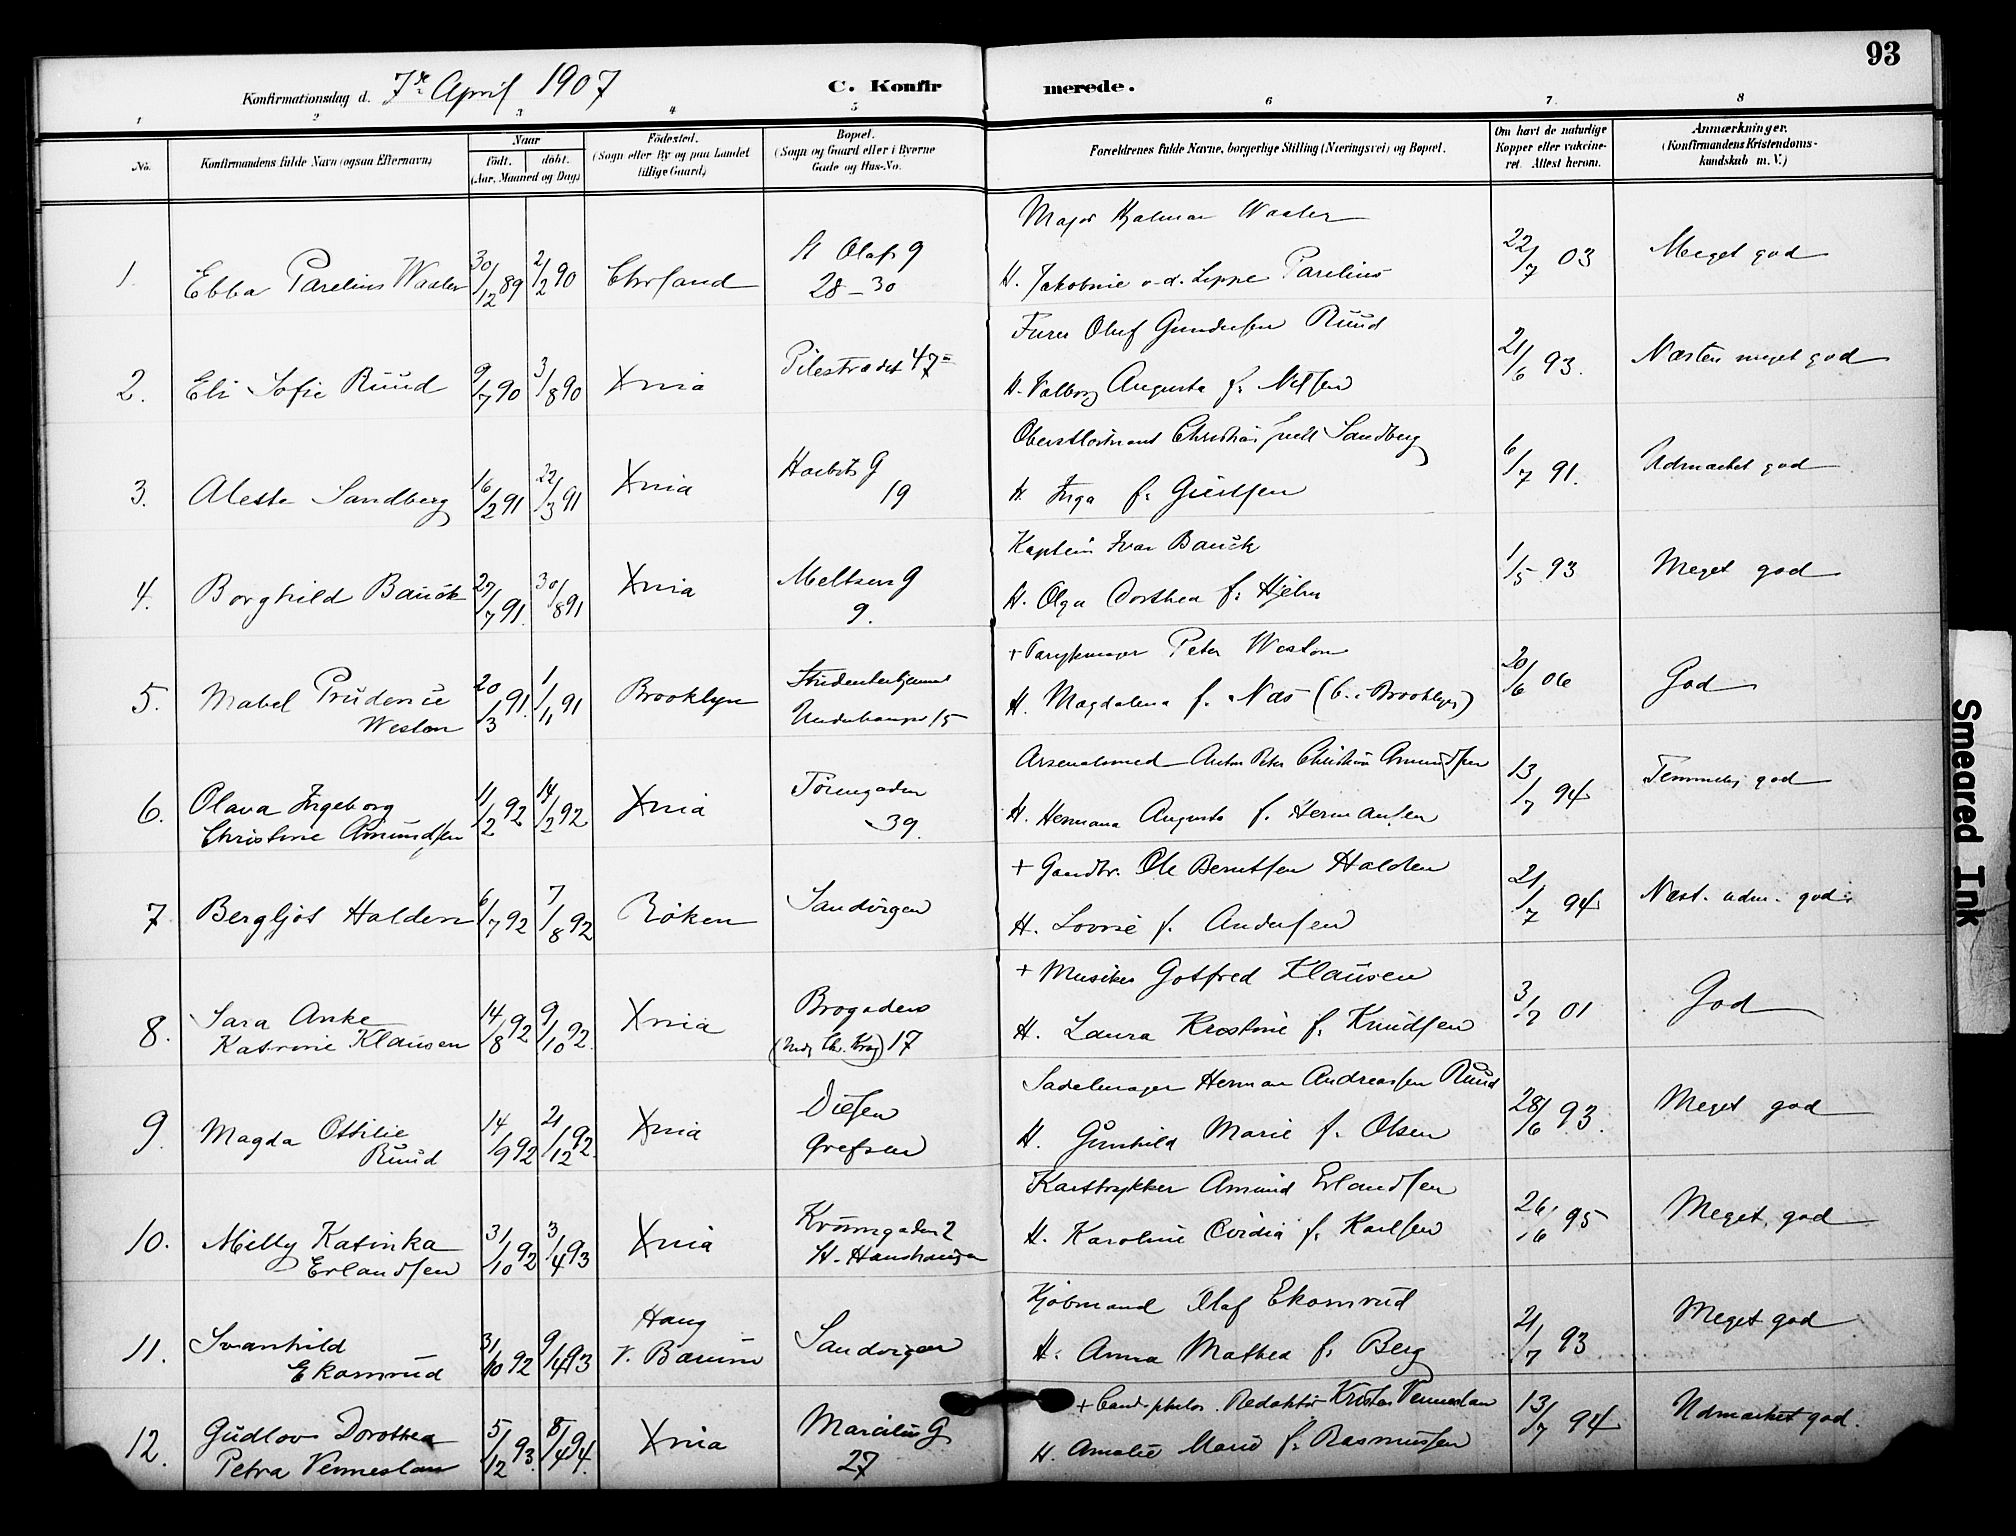 93
Konfirmationsdag d. 7de April 1907
C. Konfirmerede.
1 2 3 4 5 6 7. 8
No.
Konfirmandens fulde Navn (ogsaa Efternavn)
Naar
født. døbt.
(Aar, Maaned og Dag)
Fødested.
(Sogn eller By og paa Landet
tillige Gaard)
Bopæl.
(Sogn og Gaard eller i Byerne
Gade og Hus-No.
Forældrenes fulde Navne, borgerlige Stilling (Næringsvei) og Bopæl.
Om havt de naturlige
Kopper eller vakcine-
ret. Attest herom.
Anmærkninger.
(Konfirmandens Kristendoms-
kundskab m. V.)
1. Ebba Parelius Waaler 30/12 89 2/2 90 Chrsand St Olafs g
28-30
Major Hjalmar Waaler
H. Jakobine v. d. Lippe Parelius
22/7 03 Meget god
2. Eli Sofie Ruud 9/7 90 3/8 90 Xnia Pilestrædet 47
Furer Oluf Gundersen Ruud
H. Valborg Augusta f. Nilsen
21/6 93. Næsten meget god
3. Aleste Sandberg 16/2 91 22/3 91 Xnia
19
Oberstløitnant Sandberg
H. Inga f.
6/7 91. Udmærket god
4. Borghild Bauck 27/7 91. 30/8 91 Xnia Meltzers g
9.
Kaptein Ivar Bauck
H. Olga Dorthea f. Hjelm
1/5 93 Meget god
5. Mabel Prudencie
Weston
20/3 91. 1/11 91 Brooklyn Studenterhjemmet
Underhaugsv 15
+ Peter Weston
H. Magdalena f. Næs (b. i Brooklyn)
20/6 06 God
6. Olava Ingeborg
Christine Amundsen
11/2 92 14/2 92 Xnia
39.
Arsenalsmed Anton Peter Christian Amundsen
H. Hermana Augusta f. Hermansen
13/7 94 Temmelig god
7. Bergljot Halden 6/7 92 7/8 92 Røken Sandvigen
+ Gaardbr. Ole Berntsen Halden
H. Lovise f. Andersen
21/7 94 Næst. udm. god
8. Sara Anke
Katrine Klausen
14/8 92 9/10 92. Xnia Brogaden
17
+ Musiker Gotfred Klausen
H. Laura Kristine f. Knudsen
3/7 01 God
9. Magda Ottilie
Ruud
14/9 92 21/12 92. Xnia Disen
Grefsen
Sadelmager Herman Andreassen Ruud
H. Gunhild Marie f. Olsen
28/6 93. Meget god
10. Milly Katinka
Erlandsen
31/10 92 3/4 93 Xnia Krumgaden 2
St. Hanshaugen
Karttrykker Amund Erlandsen
H. Karoline Ovidia f. Karlsen
26/6 95 Meget god
11. Svanhild
Ekornrud
31/10 92 9/4 93 Haug
V. Bærum
Sandvigen
Kjøbmand Olaf Ekornrud
H. Anna Mathea f. Berg
21/7 93 Meget god
12. Gudlov Dorothea
Petra Venneslan
5/12 93. 8/4 94. Xnia
27
+ Cand. philos. Redaktør Krister Venneslan
H. Amalie Marie f. Rasmussen
13/7 94 Udmærket god.
Smeared Ink